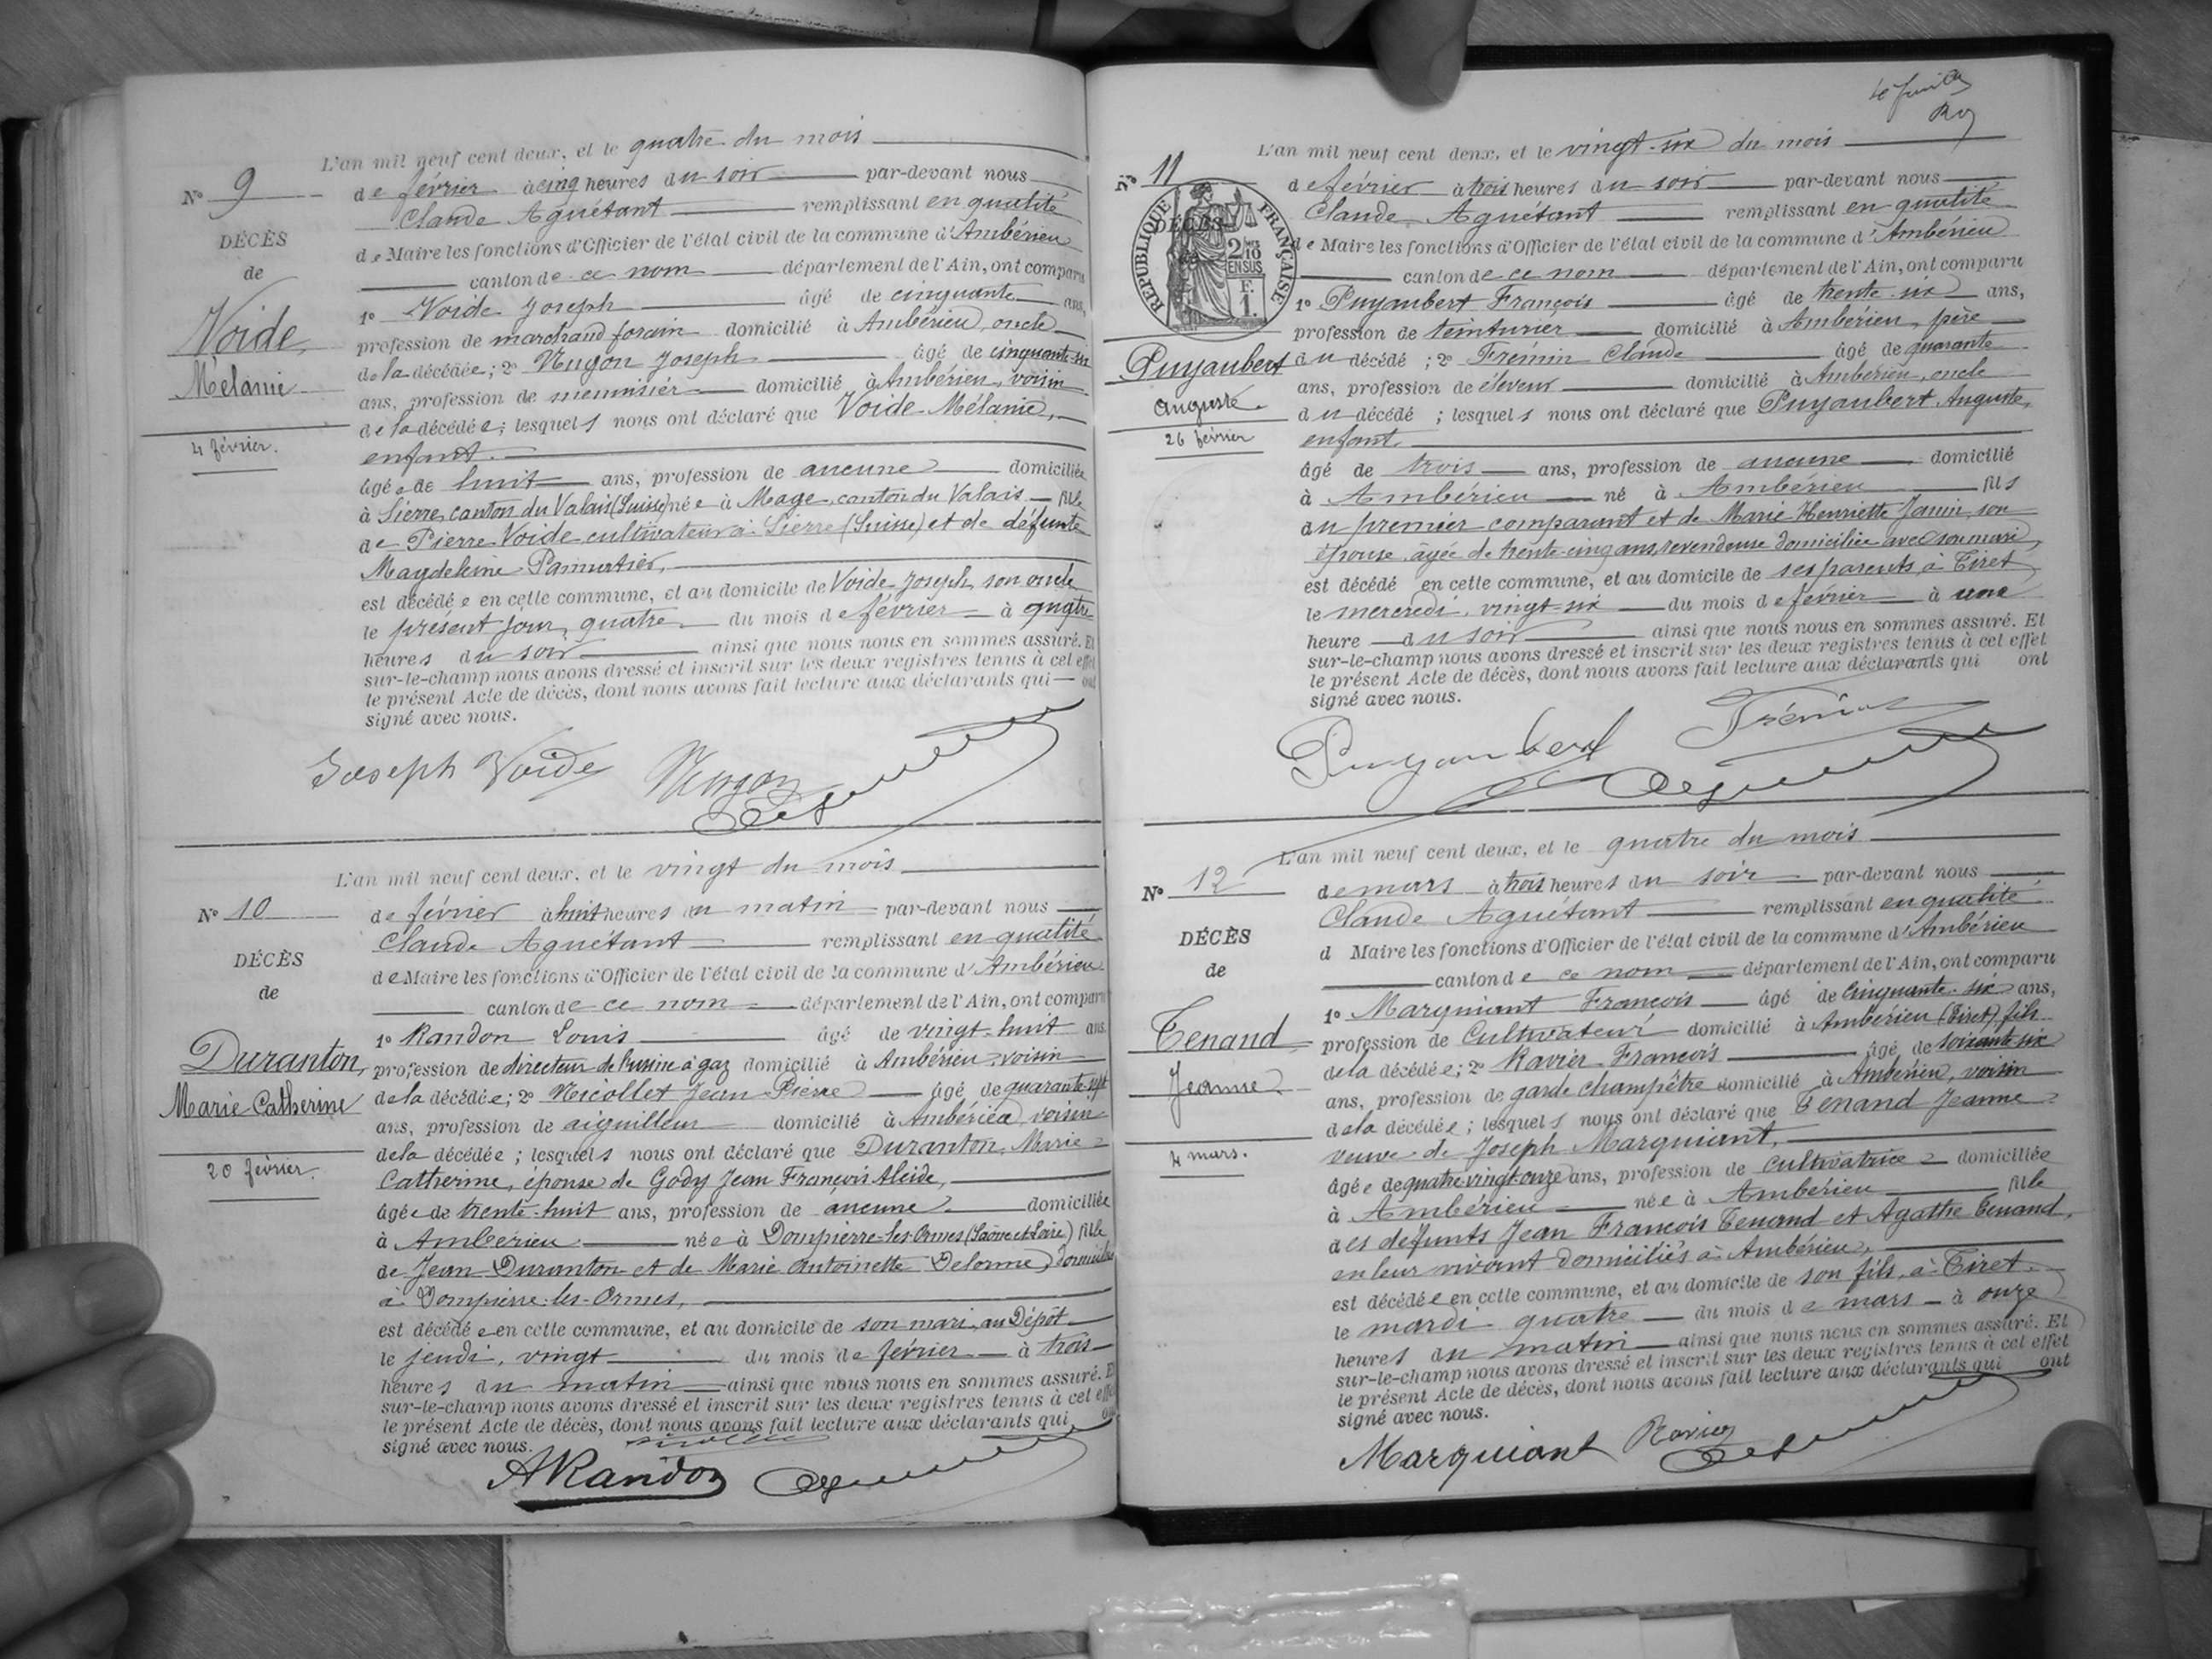 L'an mil neuf cent deux, et le quatre du mois
N° 9
de février à cinq heures du soir par-devant nous
Claude Aguétant remplissant en qualité
DÉCÈS
de
de Maire les fonctions d'Officier de l'état civil de la commune d'Ambérieu
canton de ce nom département de l'Ain, ont comparu
Voide
Mélanie
4 février.
1° Voide Joseph âgé de cinquante ans,
profession de marchand forain domicilié à Ambérieu, oncle
de la décédée; 2° Nugon Joseph âgé de cinquante-un
ans, profession de menuisier domicilié à Ambérieu, voisin
de la décédée; lesquels nous ont déclaré que Voide Mélanie,
enfant.
âgée de huit ans, profession de aucune domiciliée
à Sierre, canton du Valais (Suisse) née à Mage, canton du Valais fille
de Pierre Voide cultivateur à Sierre (Suisse) et de défunte
Magdeleine
est décédée en cette commune, et au domicile de Voide Joseph, son oncle
le présent jour, quatre du mois de février à quatre
heures du soir ainsi que nous nous en sommes assuré. Et
sur-le-champ nous avons dressé et inscrit sur les deux registres tenus à cet effet
le présent Acte de décès, dont nous avons fait lecture aux déclarants qui ont
signé avec nous.
Joseph Voide Nugon
L'an mil neuf cent deux, et le vingt du mois
N° 10
de février à huit heures du matin par-devant nous
Claude Aguétant remplissant en qualité
DÉCÈS
de
de Maire les fonctions d'Officier de l'état civil de la commune d'Ambérieu
canton de ce nom département de l'Ain, ont comparu
Duranton,
Marie Catherine
20 février.
1° Randon Louis âgé de vingt-huit ans
profession de directeur de l'usine à gaz domicilié à Ambérieu, voisin
de la décédée; 2° Nicollet Jean-Pierre âgé de quarante-sept
ans, profession de aiguilleur domicilié à Ambérieu, voisin
de la décédée; lesquels nous ont déclaré que Duranton, Marie
Catherine, épouse de Gody Jean François Alcide,
âgée de trente-huit ans, profession de aucune domiciliée
à Ambérieu née à Dompierre-les-Ormes (Saône et Loire) fille
de Jean Duranton et de Marie Antoinette Delorme, domiciliés
à Dompierre-les-Ormes,
est décédée en cette commune, et au domicile de son mari, au Dépôt
le jeudi, vingt du mois de février à trois
heures du matin ainsi que nous nous en sommes assuré. Et
sur-le-champ nous avons dressé et inscrit sur les deux registres tenus à cet effet
le présent Acte de décès, dont nous avons fait lecture aux déclarants qui ont
signé avec nous.
ARandon
L'an mil neuf cent deux, et le vingt-six du mois
N° 11
de février à trois heures du soir par-devant nous
Claude Aguétant remplissant en qualité
DÉCÈS
RÉPUBLIQUE FRANÇAISE
2/10 EN SUS
F. 1.
de Maire les fonctions d'Officier de l'état civil de la commune d'Ambérieu
canton de ce nom département de l'Ain, ont comparu
Puyaubert
Auguste.
26 février
1° Puyaubert François âgé de trente-six ans,
profession de teinturier domicilié à Ambérieu, père
du décédé; 2° Frémin Claude âgé de quarante
ans, profession de éleveur domicilié à Ambérieu, oncle
du décédé; lesquels nous ont déclaré que Puyaubert Auguste,
enfant.
âgé de trois ans, profession de aucune domicilié
à Ambérieu né à Ambérieu fils
du premier comparant et de Marie Henriette Janin, son
épouse âgée de trente-cinq ans, revendeuse domiciliée avec son mari,
est décédé en cette commune, et au domicile de ses parents, à Tiret
le mercredi, vingt-six du mois de février à une
heure du soir ainsi que nous nous en sommes assuré. Et
sur-le-champ nous avons dressé et inscrit sur les deux registres tenus à cet effet
le présent Acte de décès, dont nous avons fait lecture aux déclarants qui ont
signé avec nous.
Puyaubert Frémin
L'an mil neuf cent deux, et le quatre du mois
N° 12
de mars à trois heures du soir par-devant nous
Claude Aguétant remplissant en qualité
DÉCÈS
de
d Maire les fonctions d'Officier de l'état civil de la commune d'Ambérieu
canton de ce nom département de l'Ain, ont comparu
Tenand
Jeanne
4 mars.
1° Marquiant François âgé de cinquante-six ans,
profession de Cultivateur domicilié à Ambérieu (Tiret) fils
de la décédée; 2° Ravier François âgé de soixante-six
ans, profession de garde champêtre domicilié à Ambérieu, voisin
de la décédée; lesquels nous ont déclaré que Tenand Jeanne
veuve de Joseph Marquiant,
âgée de quatre-vingt-onze ans, profession de cultivatrice domiciliée
à Ambérieu née à Ambérieu fille
des défunts Jean François Tenand et Agathe Tenand,
en leur vivant domiciliés à Ambérieu,
est décédée en cette commune, et au domicile de son fils, à Tiret
le mardi quatre du mois de mars à onze
heures du matin ainsi que nous nous en sommes assuré. Et
sur-le-champ nous avons dressé et inscrit sur les deux registres tenus à cet effet
le présent Acte de décès, dont nous avons fait lecture aux déclarants qui ont
signé avec nous.
Marquiant Ravier